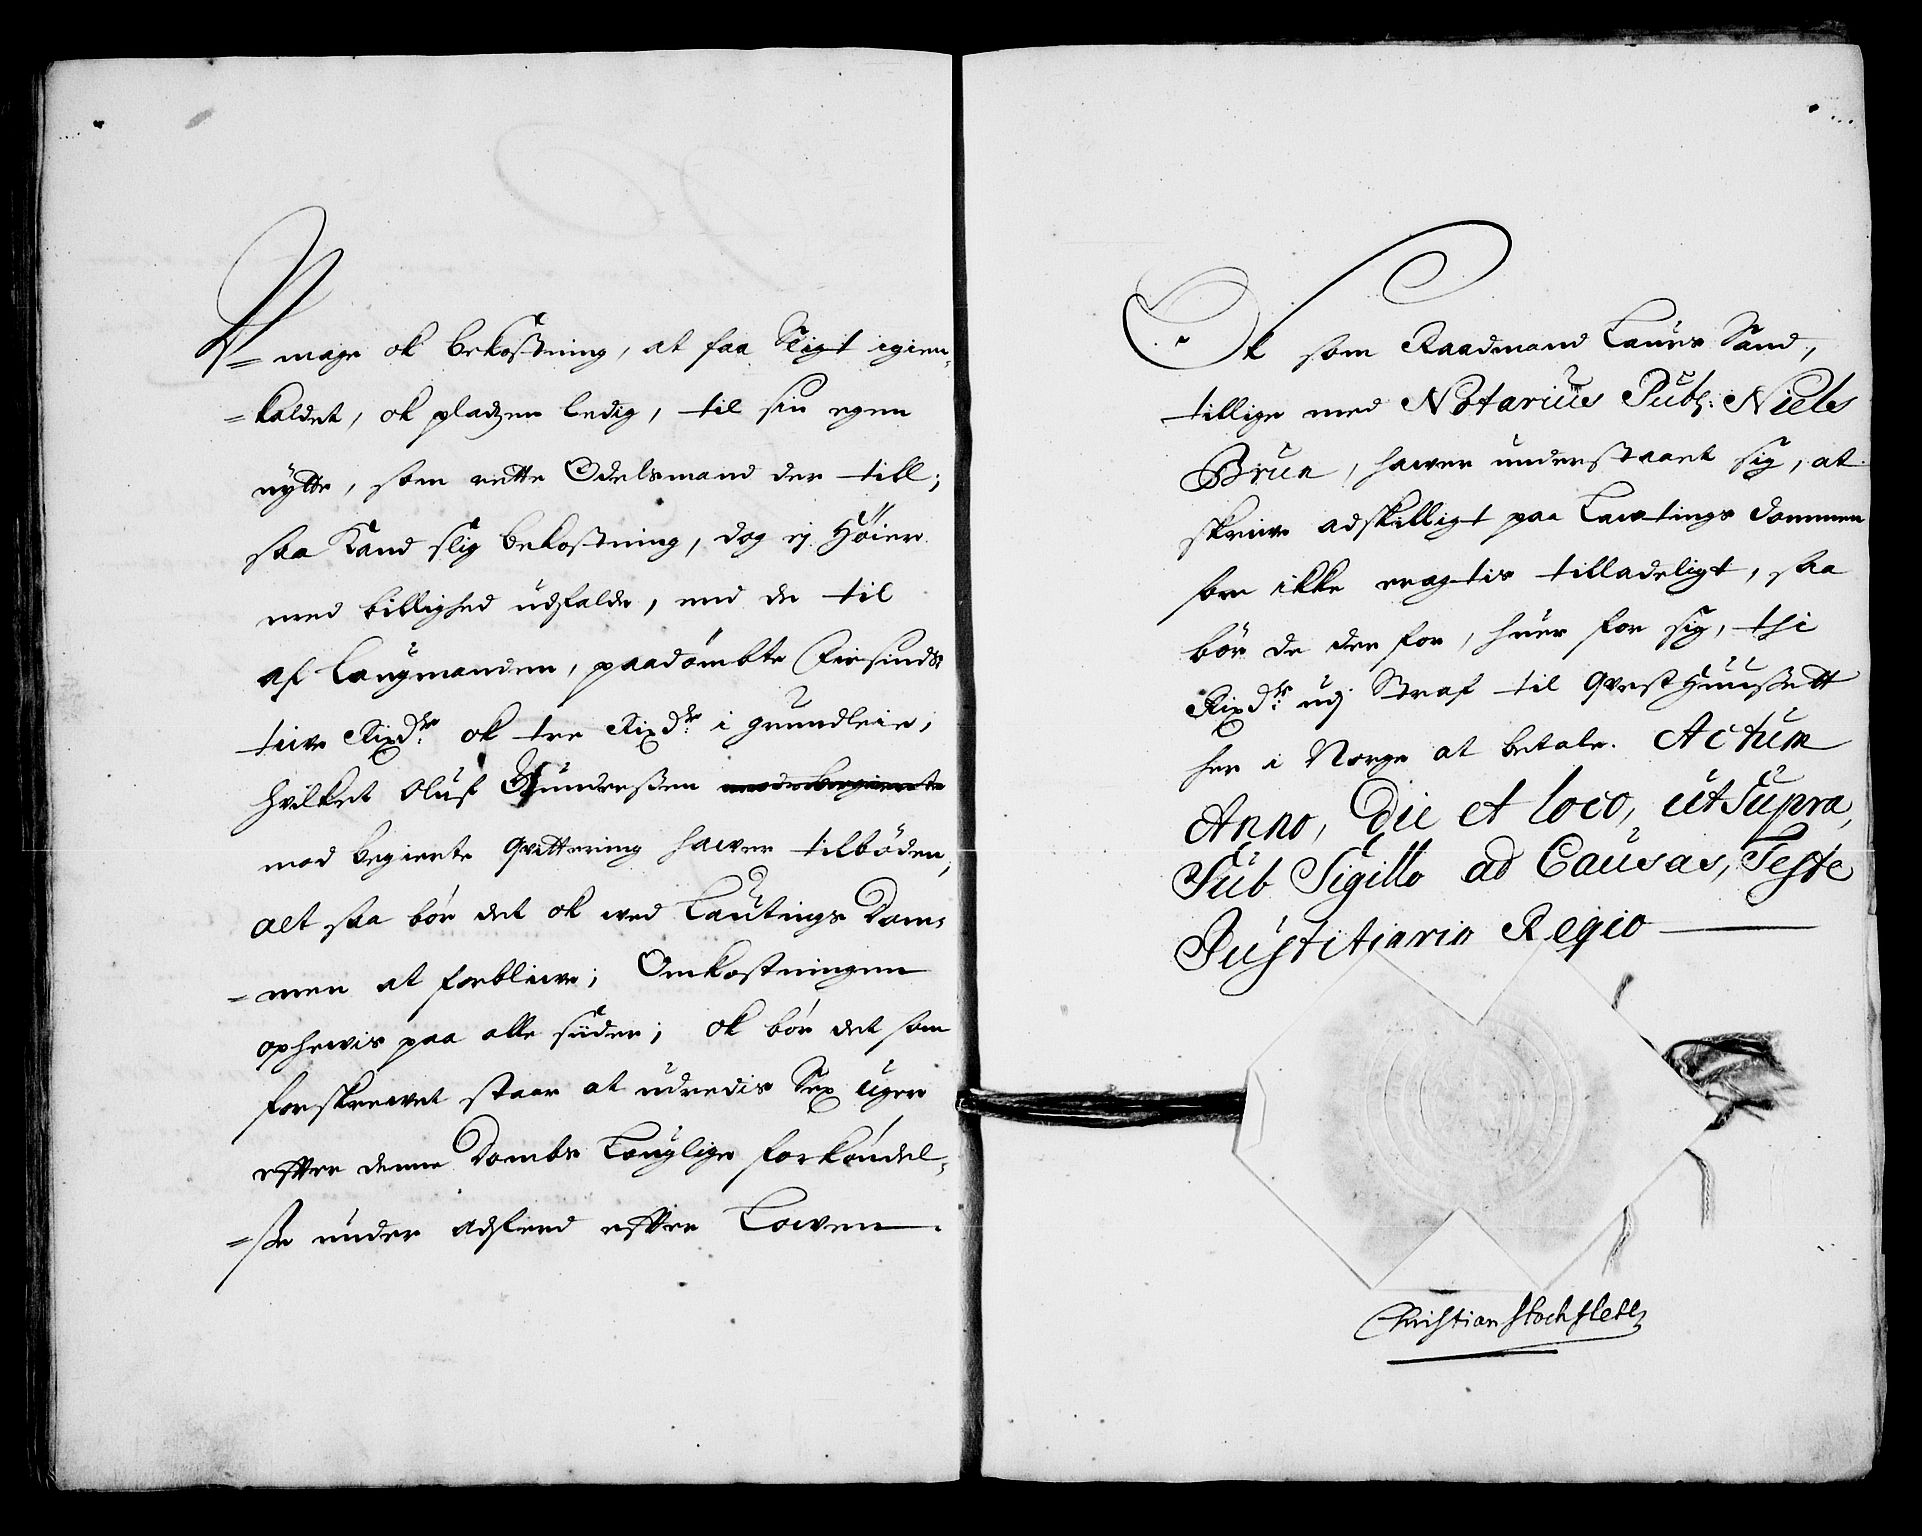 = mage ok bekostning, at faa Sligt igien-
= kaldet, ok pladzen ledig, til sin egen
nÿtte, som rette Odelsmand der till;
saa kand slig bekostning, dog ej Höier
med billighed udfalde, end de til
af Laugmanden, paadömbte Firsinds
tiuve Rixdr. ok tre Rixdr. i grundleie,
hvilket Oluf Gundersen
mod begierte Qvittering hawer tilböden,
alt saa bör det ok wed Lautings Dom-
= men at forbliwe; Omkostningen
ophewis paa alle siider; ok bör det som
forskrewet staar at udredis Sex uger
effter denne Dombs Lauglige forkÿndel-
= se under adferd effter Lowen.
Ok som Raadmand Laurs Sand,
tillige med Notarius Publ: Niels
Brun, hawer understaaet sig, at
skriwe adskilligt paa Lawtings dommen
som ikke eragtis tilladeligt, saa
bör de der for, huer for sig, thi
Rixdr. udj Straf til Qvesthuusett
her i Norge at betale. Actum
Anno, Die et loco, ut Supra,
Sub Sigillo ad Causas, Teste
Justitiario Regio
Christian Stochfleth